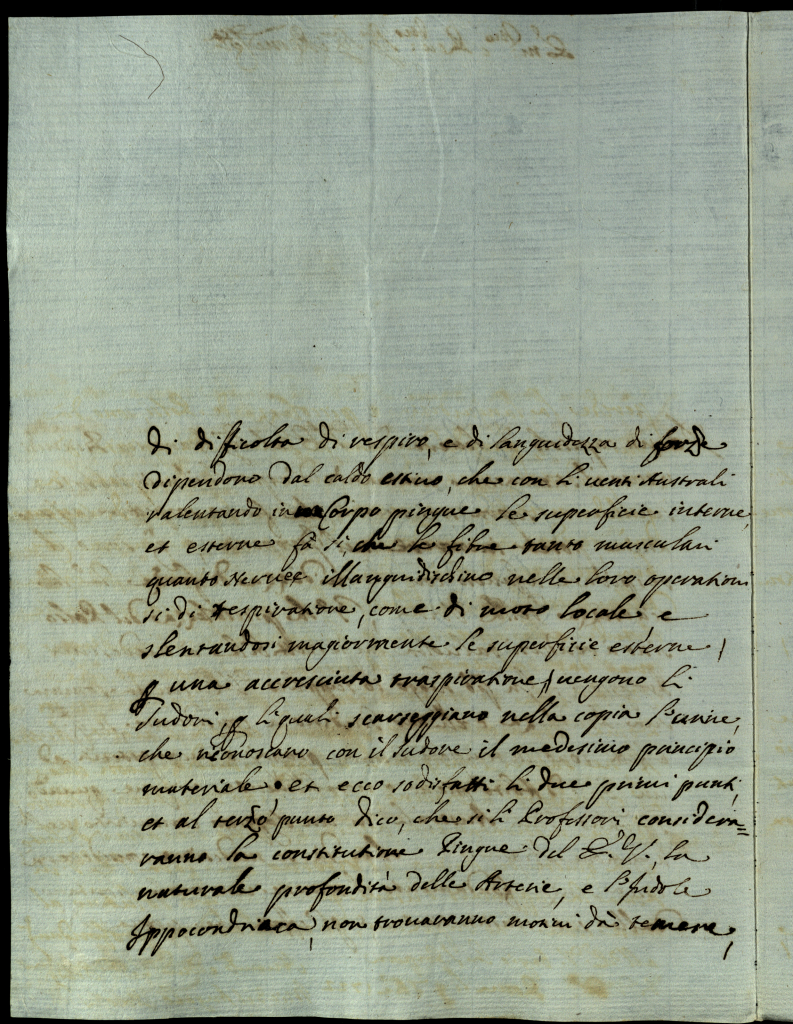 di difficolta di respiro, e di languidezza di forze
dipendono dal caldo estiuo, che con li uenti Australi
ralentando in Corpo pingue le superficie interne,
et esterne fà si, che le fibre tanto musculari
quanto neruee illanguidischino nelle loro operationi
si di respiratione, come di moto locale e
slentandosi magiormente le superficie esterne,
p una accresciuta traspiratione, uengono li
sudori, p li quali scarseggiano nella copia l'urine,
che riconoscano con il sudore il medesimo principio
materiale et ecco sodisfatti li due primi punti,
et al terzo punto dico, che si li Professori considera=
ranno la constitutione Pingue del P. V., la
naturale profondità delle Arterie, e l'Indole
Ippocondriaca, non trouaranno motiui dà temere,